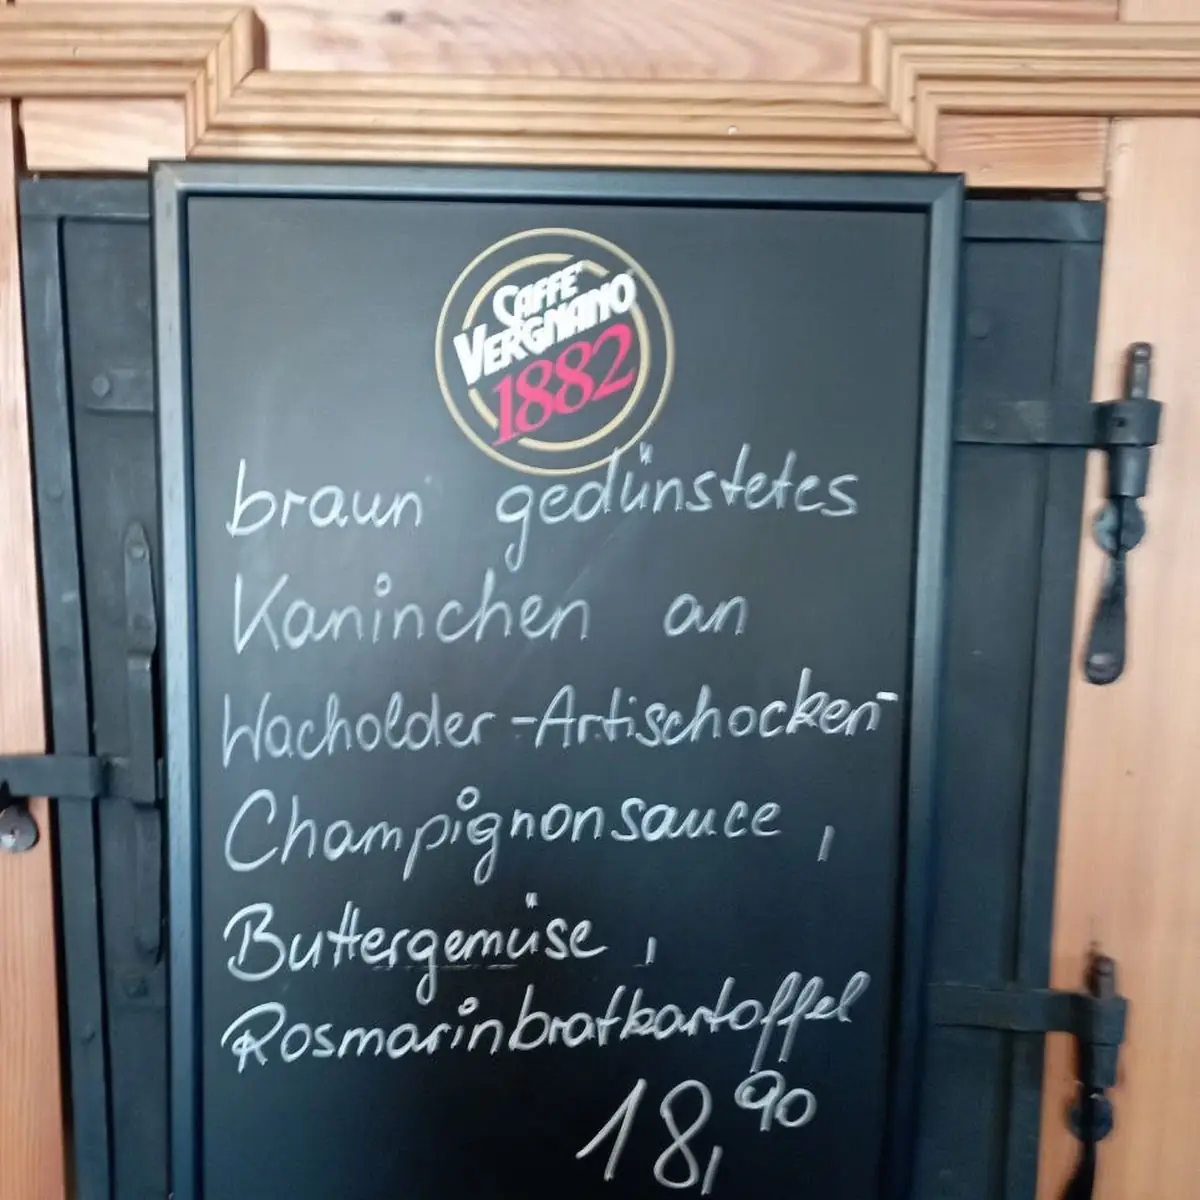 CAFFÈ
VERGNANO
1882
braun gedünstetes
Kaninchen an
Wacholder-Artischocken-
Champignonsauce,
Buttergemüse,
Rosmarinbratkartoffel
18,90